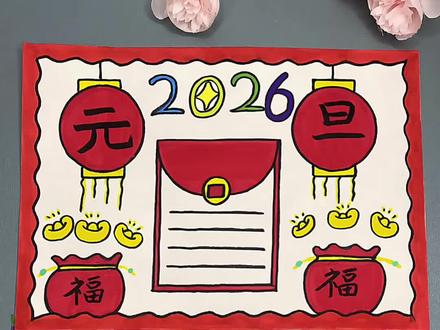 2026
元旦
福 福